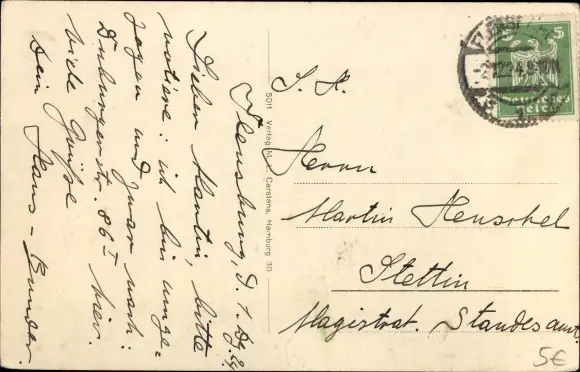 Flensburg, d. 1. Dez. 24
Lieben Martin, bitte
notiere: ich bin umge=
zogen und zwar nach:
Duburgerstr. 86 I hier.
Viele Grüße
Dein Hans-Gunder.
5011 Verlag M. Carstens, Hamburg 30
5
S. H.
Herrn
Martin Henschel
Stettin
Magistrat. Standesamt.
5€